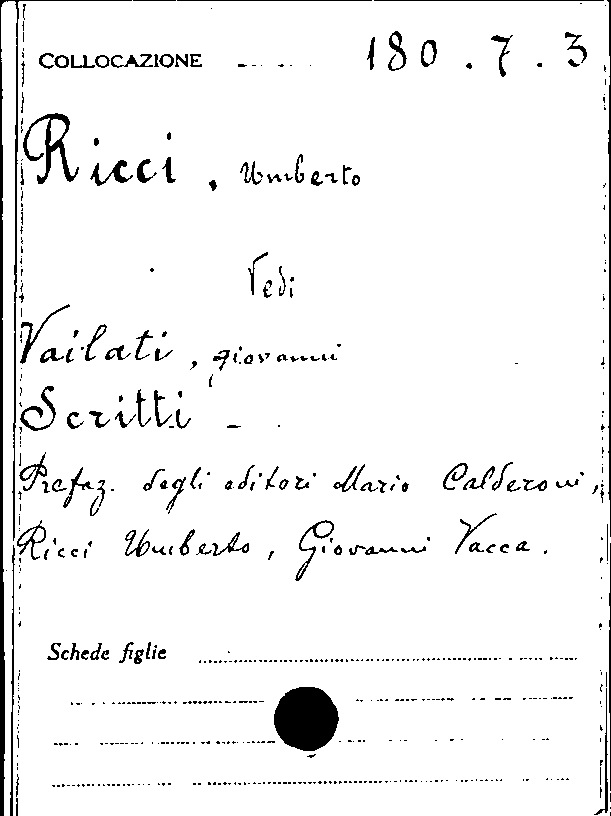 COLLOCAZIONE 180.7.3
Ricci, Umberto
Vedi
Vailati, Giovanni
Scritti -
Prefaz. degli editori Mario Calderoni,
Ricci Umberto, Giovanni Vacca.
Schede figlie